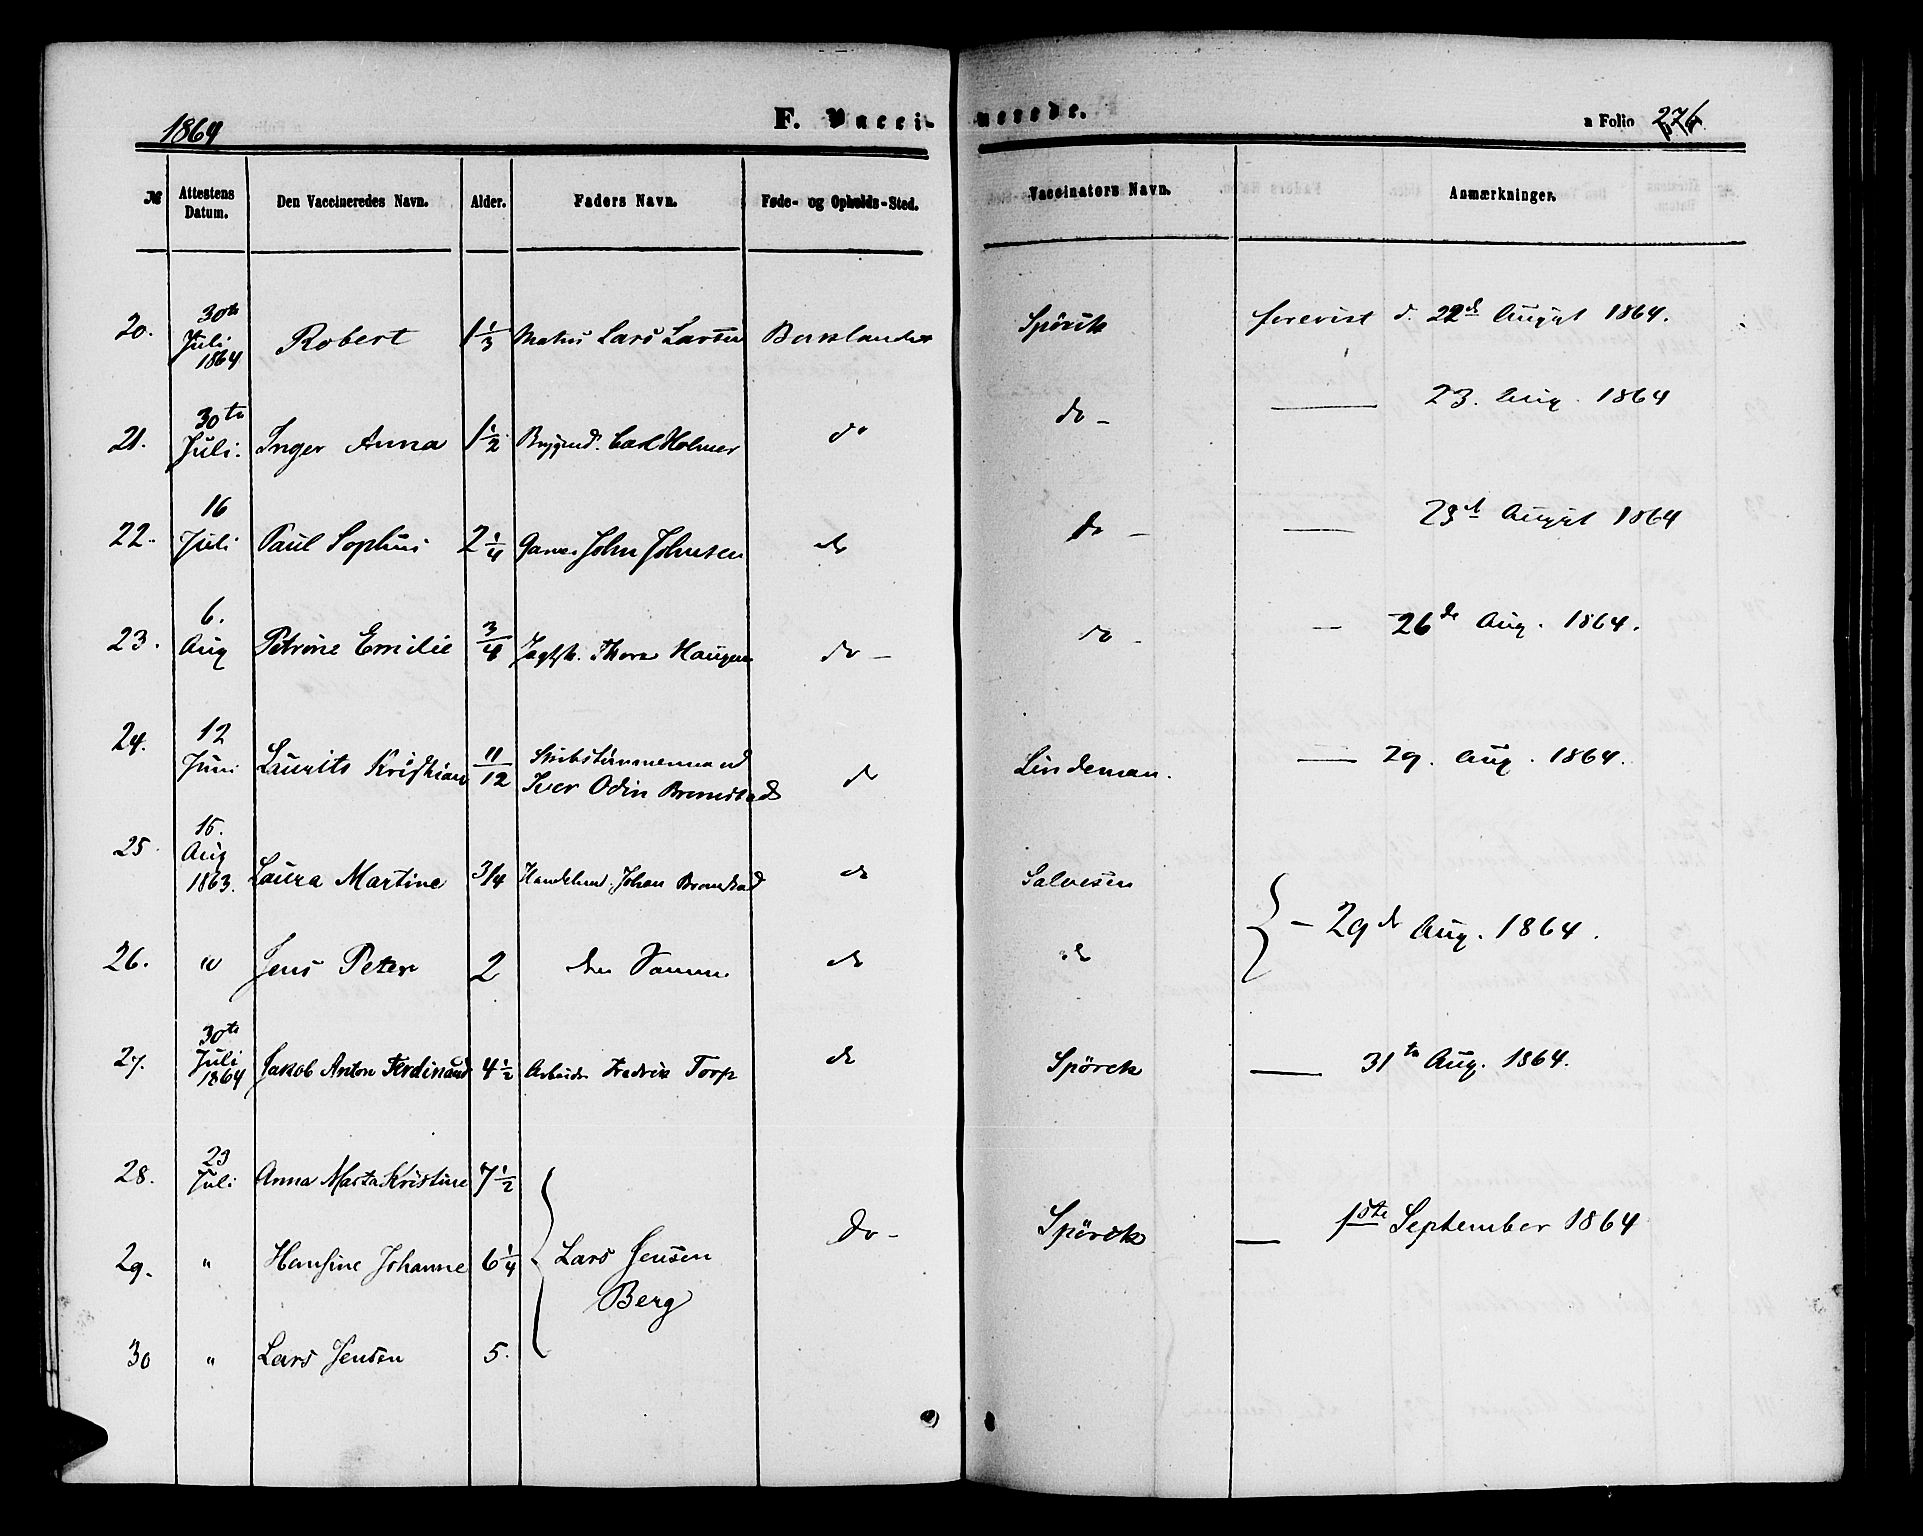 1864
F. Vaccinerede.
a Folio 276.
№ Attestens Datum. Den Vaccineredes Navn. Alder. Faders Navn. Føde- og Opholds-Sted. Vaccinators Navn. Anmærkninger.
20. 30te Juli 1864 Robert 1 1/3 Lars Larsen Baklandet Spørck forevist d. 22de August 1864.
21. 30te Juli. Inger Anna 1 1/2 Carl Holmer do do - — 23. Aug. 1864
22. 16 Juli Paul Sophus 2 1/4 John Johnsen do do - — 23d August 1864
23. 6. Aug Petrine Emilie 3/4 Thore Haugen do - do - — 26de Aug. 1864.
24. 12 Juni Laurits Kristian 11/12 Skibstømmermand Iver Odin Bromstad do Lindeman. — 29. Aug. 1864.
25. 15. Aug 1863. Laura Martine 3/4 Handelsmd. Johan Bromstad do Salvesen
26. " Jens Peter 2 den Samme do do } — 29de Aug. 1864.
27. 30te Juli 1864 Jakob Anton Ferdinand 4 1/2 Arbeider Fredrik Torp do Spørck — 31te Aug. 1864.
28. 23 Juli Anna Marta Kristine 7 1/2
29. " Hansine Johanne 6 1/4 { Lars Jensen Berg do - Spørck — 1ste September 1864
30 " Lars Jensen 5.